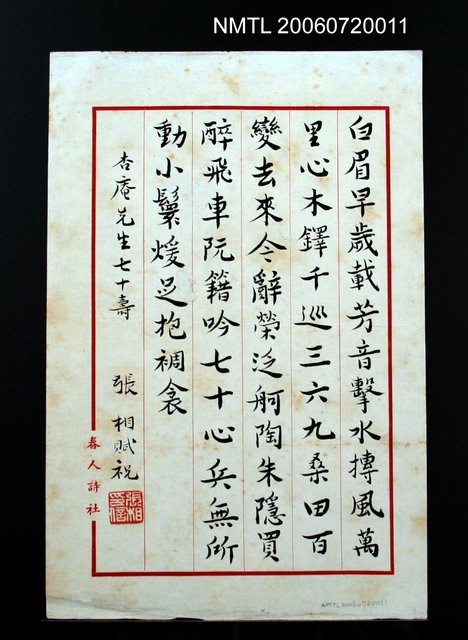 NMTL 20060720011
白眉早歲載芳音擊水摶風萬
里心木鐸千巡三六九桑田百
變去來今辭榮泛舸陶朱隱買
醉飛車阮籍吟七十心兵無所
動小鬟煖足抱裯衾
杏庵先生七十壽
張相賦祝
張相
印信
春人詩社
NMTL20060720011